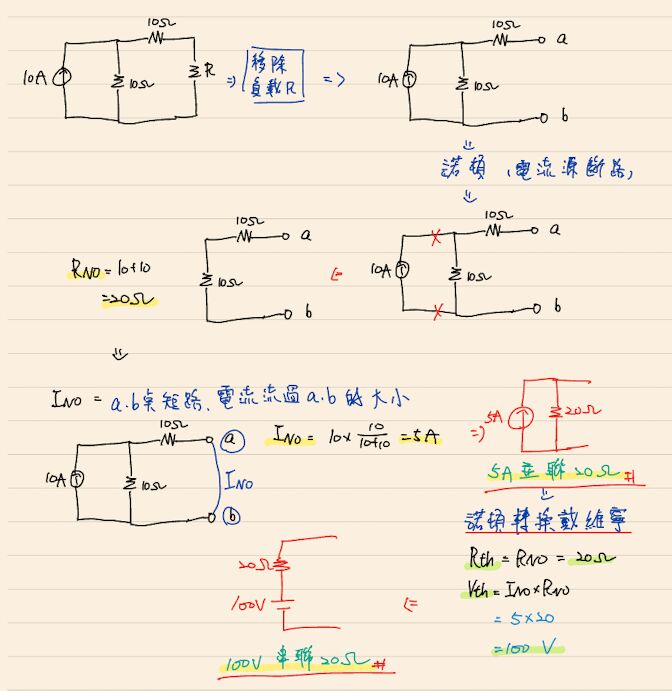 10Ω
10A
10Ω
R
=> 移除
負載R
=>
10Ω
a
10A
10Ω
b
諾頓、電流源斷路,
10Ω
a
10A
10Ω
b
10Ω
a
10Ω
b
RNO = 10+10
=20Ω
INO = a.b 短路、電流流過a.b的大小
10Ω
a
10A
10Ω
INO
b
INO = 10× 10/10+10 = 5A
=>
5A
20Ω
5A並聯20Ω #
諾頓轉換戴維寧
Rth = RNO = 20Ω
Vth = INO×RNO
= 5×20
=100 V
20Ω
100V
100V 串聯20Ω #